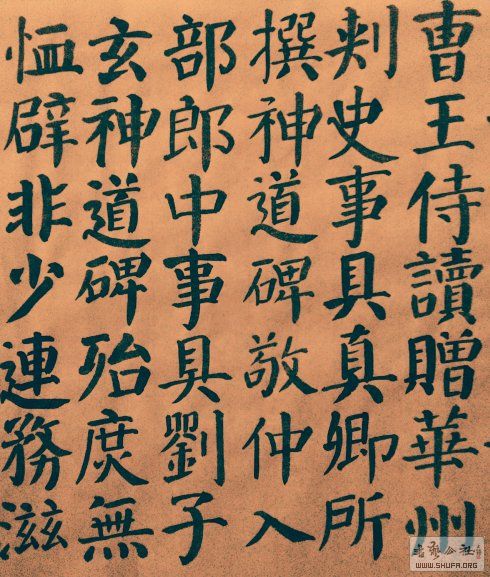 曹王侍讀贈華州
刾史事具真卿所
撰神道碑敬仲入
部郎中事具劉子
玄神道碑殆庶無
恤辟非少連務滋
WWW.SHUFA.ORG